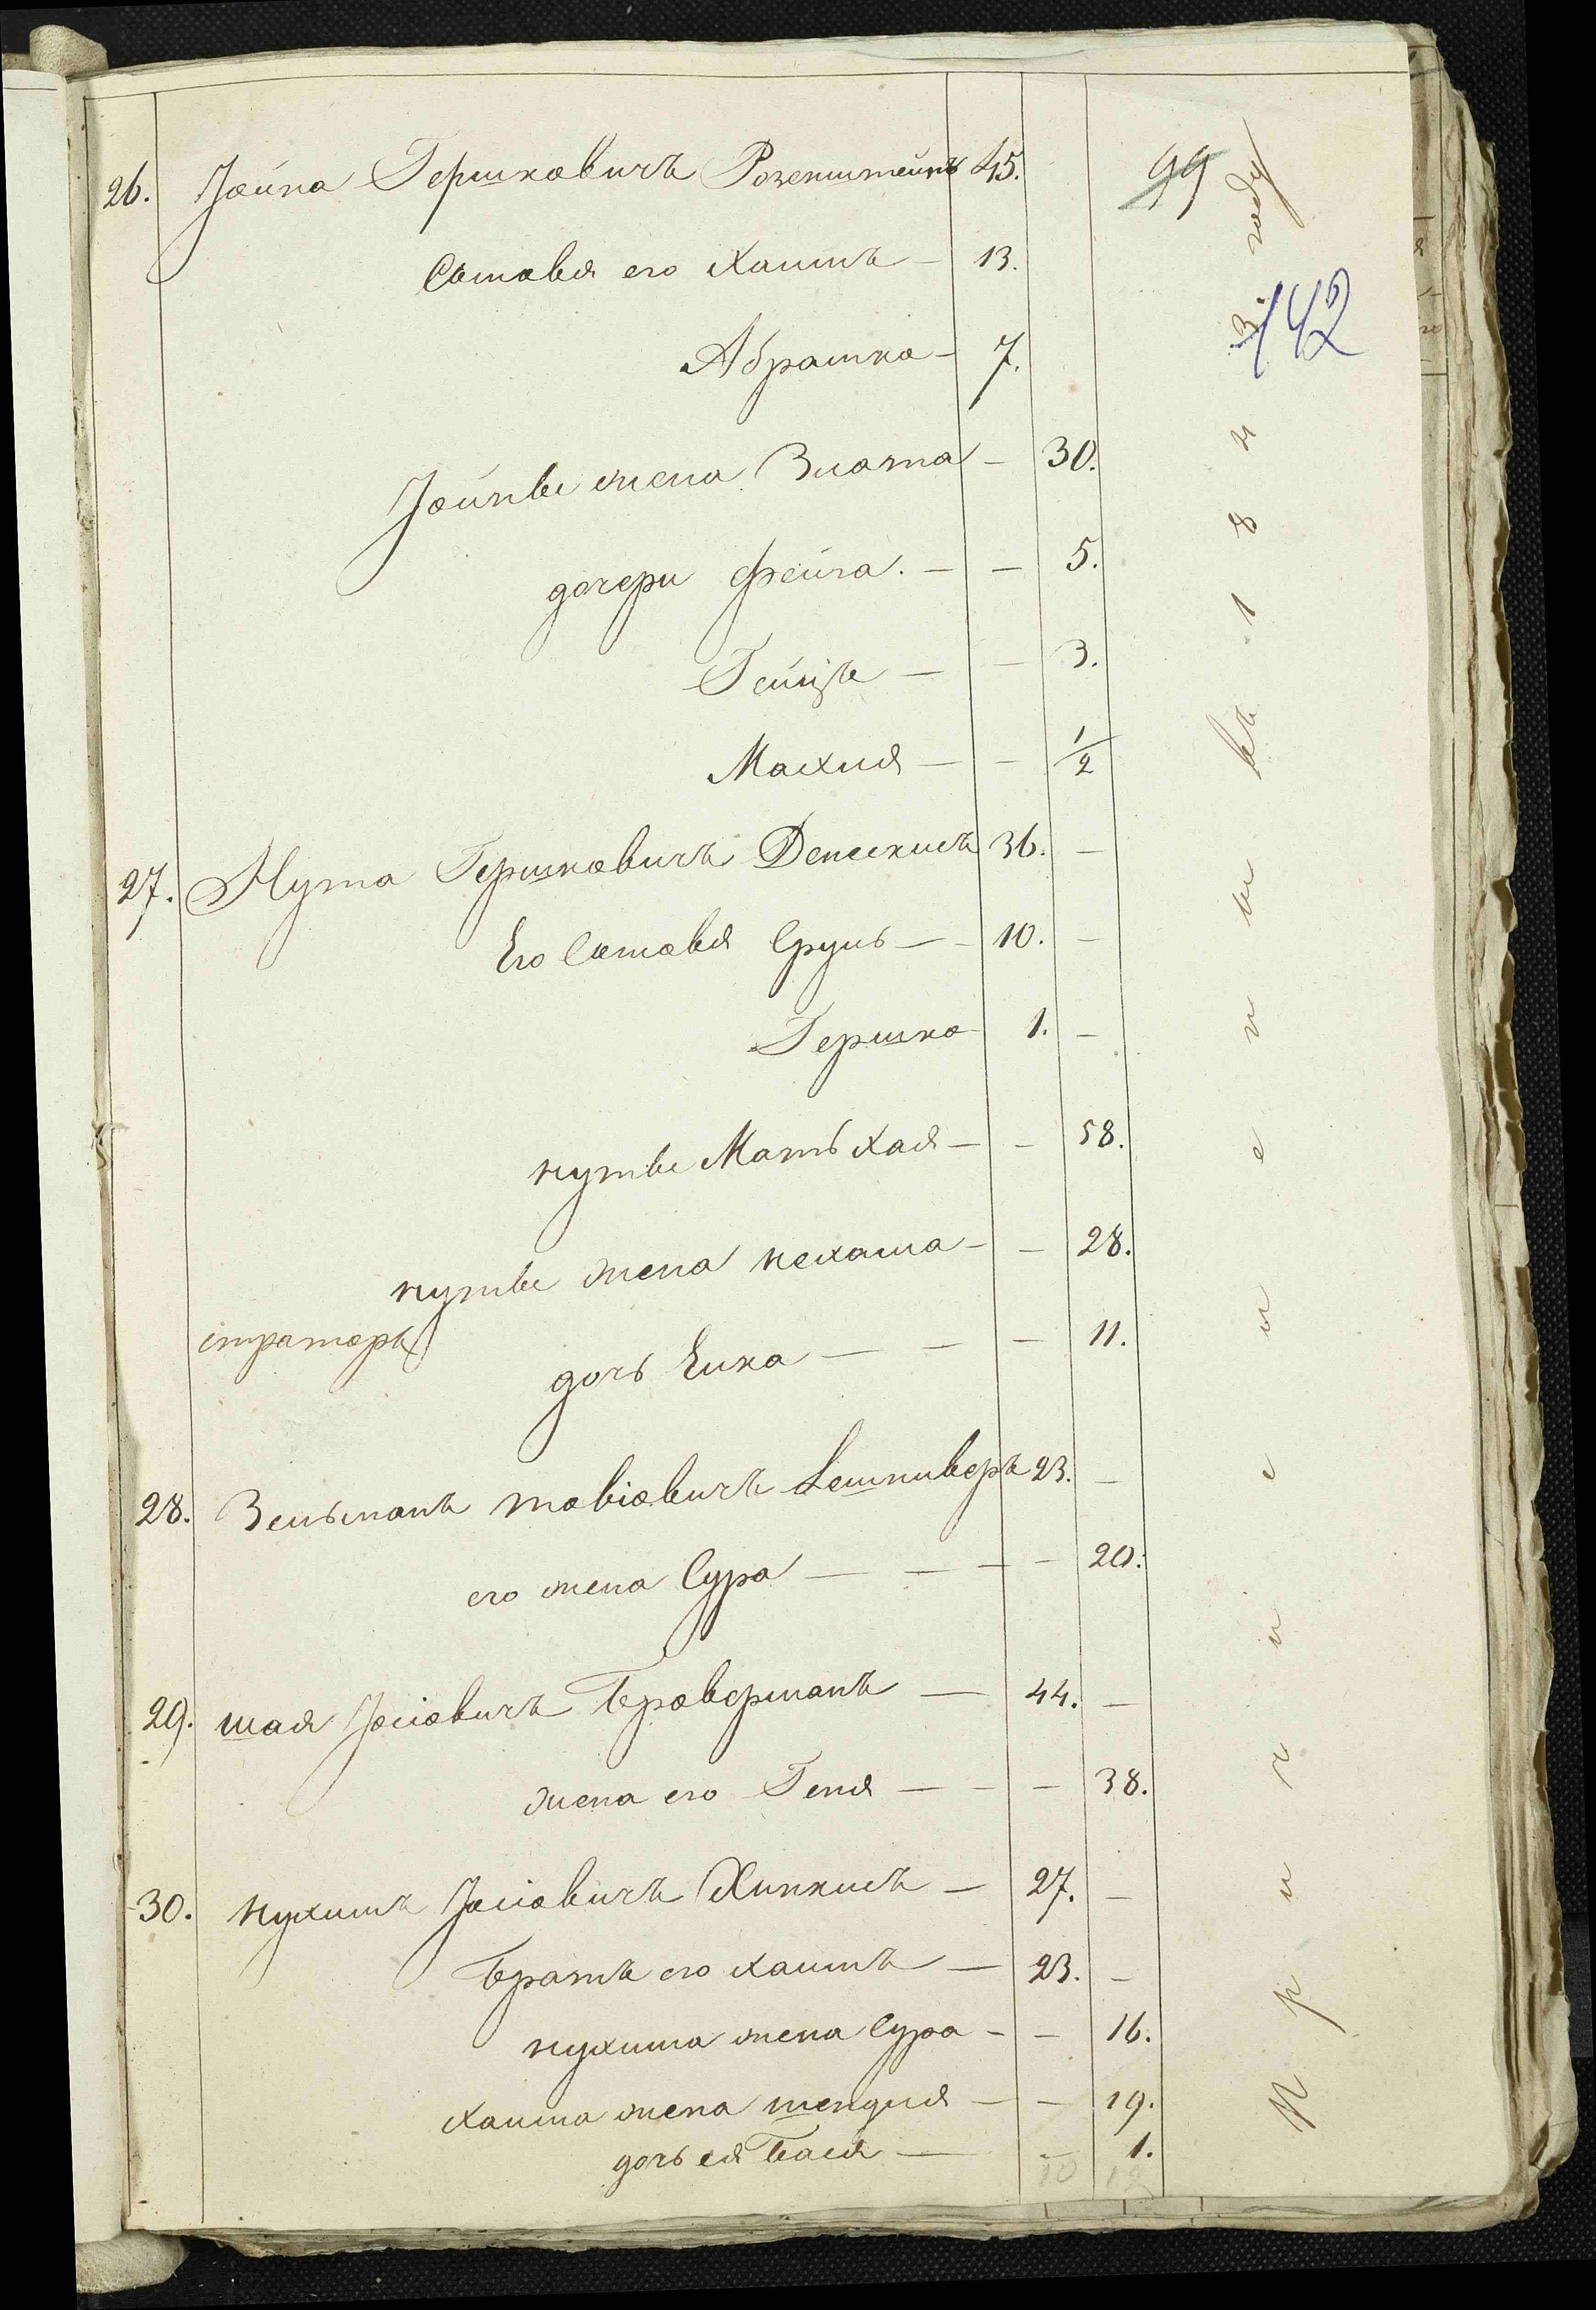 99
142
26. Іойна Гершковичъ Розенштейнъ 45.
Сыновья его Хаимъ — 13.
Абрамко — 7.
Іойны жена Злата — 30.
дочери Фейга. — — 5.
Гейзъ — — 3.
Махля — — 1/2
27. Нута Гершковичъ Денескисъ 36. —
Его Сыновья Сруль — — 10. —
Гершко 1. —
нуты Мать Хая — — 58.
нуты жена нехама — — 28.
стратора
дочь Елка — — — 11.
28. Зельманъ товіовичъ Лешниверъ 23. —
его жена Сура — — — — 20.
29. шая Іосіовичъ Броверманъ — 44. —
жена его Геня — — — 38.
30. нухимъ Іосіовичъ Хинкисъ — 27. —
братъ его хаимъ — 23. —
нухима жена Сура — — 16.
хаима жена шендля — — 19.
дочь ея Бася — — 1.
10 12
Причислены въ 1843. году